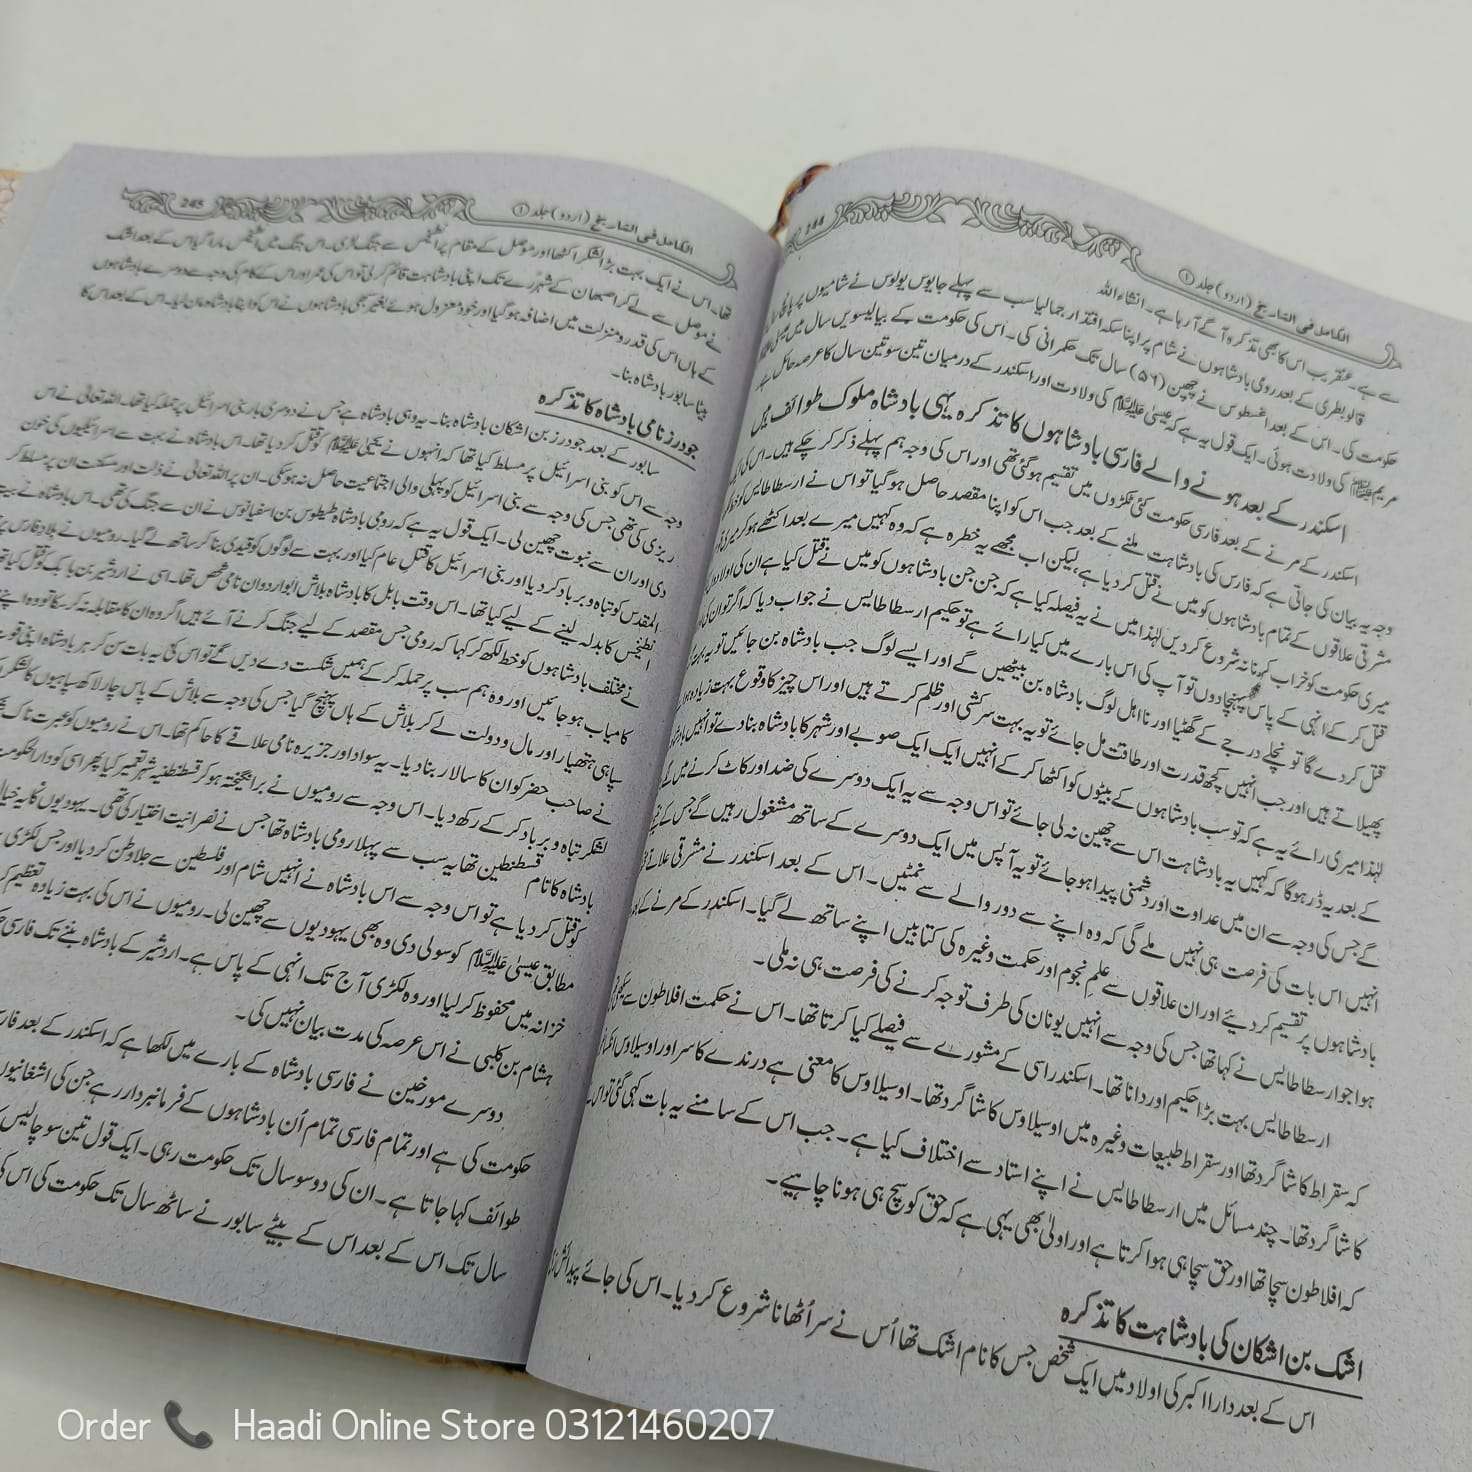 الکامل فی التاریخ (اردو) جلد ①
244
سے ہے۔ عنقریب اس کا بھی تذکرہ آگے آ رہا ہے۔ انشاء اللہ
قالو بطری کے بعد رومی بادشاہوں نے شام پر اپنا سکہ اقتدار جما لیا سب سے پہلے جایوس یولوس نے شامیوں پر پانچ
حکومت کی۔ اس کے بعد اغسطوس نے چھپن (۵۶) سال تک حکمرانی کی۔ اس کی حکومت کے بیالیسویں سال میں عیسیٰ
مریم کی ولادت ہوئی۔ ایک قول یہ ہے کہ عیسیٰ علیہ السلام کی ولادت اور اسکندر کے درمیان تین سو تین سال کا عرصہ حائل ہے
اسکندر کے بعد ہونے والے فارسی بادشاہوں کا تذکرہ یہی بادشاہ ملوک طوائف ہیں
اسکندر کے مرنے کے بعد فارسی حکومت کئی ٹکڑوں میں تقسیم ہو گئی تھی اور اس کی وجہ ہم پہلے ذکر کر چکے ہیں۔ اس کی
وجہ یہ بیان کی جاتی ہے کہ فارس کی بادشاہت ملنے کے بعد جب اس کو اپنا مقصد حاصل ہو گیا تو اس نے ارسطاطالیس کو خط
مشرقی علاقوں کے تمام بادشاہوں کو میں نے قتل کر دیا ہے، لیکن اب مجھے یہ خطرہ ہے کہ وہ کہیں میرے بعد اکٹھے ہو کر
میری حکومت کو خراب کرنا نہ شروع کر دیں لہٰذا میں نے یہ فیصلہ کیا ہے کہ جن جن بادشاہوں کو میں نے قتل کیا ہے ان کی اولاد
قتل کر کے انہی کے پاس پہنچا دوں تو آپ کی اس بارے میں کیا رائے ہے تو حکیم ارسطاطالیس نے جواب دیا کہ اگر تو ان کی
قتل کر دے گا تو نچلے درجے کے گھٹیا اور نااہل لوگ بادشاہ بن بیٹھیں گے اور ایسے لوگ جب بادشاہ بن جائیں تو یہ
پھیلاتے ہیں اور جب انہیں کچھ قدرت اور طاقت مل جائے تو یہ بہت سرکشی اور ظلم کرتے ہیں اور اس چیز کا وقوع بہت زیادہ
لہٰذا میری رائے یہ ہے کہ تو سب بادشاہوں کے بیٹوں کو اکٹھا کر کے انہیں ایک ایک صوبے اور شہر کا بادشاہ بنا دے تو انہیں
کے بعد یہ ڈر ہو گا کہ کہیں یہ بادشاہت اس سے چھین نہ لی جائے تو اس وجہ سے یہ ایک دوسرے کی ضد اور کاٹ کرنے میں
گے جس کی وجہ سے ان میں عداوت اور دشمنی پیدا ہو جائے تو یہ آپس میں ایک دوسرے کے ساتھ مشغول رہیں گے جس کے
انہیں اس بات کی فرصت ہی نہیں ملے گی کہ وہ اپنے سے دور والے سے نمٹیں۔ اس کے بعد اسکندر نے مشرقی علاقے
بادشاہوں پر تقسیم کر دیئے اور ان علاقوں سے علم نجوم اور حکمت وغیرہ کی کتابیں اپنے ساتھ لے گیا۔ اسکندر کے مرنے کے
ہوا جو ارسطاطالیس نے کہا تھا جس کی وجہ سے انہیں یونان کی طرف توجہ کرنے کی فرصت ہی نہ ملی۔
ارسطاطالیس بہت بڑا حکیم اور دانا تھا۔ اسکندر اسی کے مشورے سے فیصلے کیا کرتا تھا۔ اس نے حکمت افلاطون سے
کہ سقراط کا شاگرد تھا اور سقراط طبیعات وغیرہ میں اوسیلاوس کا شاگرد تھا۔ اوسیلاوس کا معنی ہے درندے کا سر اور اوسیلاوس
کا شاگرد تھا۔ چند مسائل میں ارسطاطالیس نے اپنے استاد سے اختلاف کیا ہے۔ جب اس کے سامنے یہ بات کہی گئی تو اس
کہ افلاطون سچا تھا اور حق سچا ہی ہوا کرتا ہے اور اولیٰ بھی یہی ہے کہ حق کو سچ ہی ہونا چاہیے۔
اشک بن اشکان کی بادشاہت کا تذکرہ
اس کے بعد دارا اکبر کی اولاد میں ایک شخص جس کا نام اشک تھا اُس نے سر اُٹھانا شروع کر دیا۔ اس کی جائے پیدائش
الکامل فی التاریخ (اردو) جلد ①
245
تھا۔ اس نے ایک بہت بڑا لشکر اکٹھا اور موصل کے مقام پر انطیخس سے جنگ لڑی۔ اس جنگ میں انطیخس مارا گیا اس کے بعد اشک
نے موصل سے لے کر اصبہان کے شہر رے تک اپنی بادشاہت قائم کر لی تو اس کی عمر اور اس کے کام کی وجہ سے دوسرے بادشاہوں
کے ہاں اس کی قدر و منزلت میں اضافہ ہو گیا اور خود معزول ہوئے بغیر بھی بادشاہوں نے اس کو اپنا بادشاہ مان لیا۔ اس کے بعد اس کا
بیٹا سابور بادشاہ بنا۔
جودرز نامی بادشاہ کا تذکرہ
سابور کے بعد جودرز بن اشکان بادشاہ بنا۔ یہ وہی بادشاہ ہے جس نے دوسری بار بنی اسرائیل پر حملہ کیا تھا۔ اللہ تعالیٰ نے اس
وجہ سے اس کو بنی اسرائیل پر مسلط کیا تھا کہ انہوں نے یحییٰ علیہ السلام کو قتل کر دیا تھا۔ اس بادشاہ نے بہت سے اسرائیلیوں کی خون
ریزی کی تھی جس کی وجہ سے بنی اسرائیل کو پہلی والی اجتماعیت حاصل نہ ہو سکی۔ ان پر اللہ تعالیٰ نے ذلت اور مسکنت ان پر مسلط کر
دی اور ان سے نبوت چھین لی۔ ایک قول یہ ہے کہ رومی بادشاہ طیطوس بن اسفیانوس نے ان سے جنگ کی تھی۔ اس بادشاہ نے بیت
المقدس کو تباہ و برباد کر دیا اور بنی اسرائیل کا قتلِ عام کیا اور بہت سے لوگوں کو قیدی بنا کر ساتھ لے گیا۔ رومیوں نے بلادِ فارس پر
انطیخس کا بدلہ لینے کے لیے کیا تھا۔ اس وقت بابل کا بادشاہ بلاش ابو اردوان نامی شخص تھا۔ اسی نے اردشیر بن بابک کو قتل کیا تھا
نے مختلف بادشاہوں کو خط لکھ کر کہا کہ رومی جس مقصد کے لیے جنگ کرنے آئے ہیں اگر وہ ان کا مقابلہ نہ کر سکا تو وہ اپنے
کامیاب ہو جائیں اور وہ ہم سب پر حملہ کر کے ہمیں شکست دے دیں گے تو اس کی یہ بات سن کر ہر بادشاہ اپنی قوت
سپاہی ہتھیار اور مال و دولت لے کر بلاش کے ہاں پہنچ گیا جس کی وجہ سے بلاش کے پاس چار لاکھ سپاہیوں کا لشکر
نے صاحب حضر کو ان کا سالار بنا دیا۔ یہ سواد اور جزیرہ نامی علاقے کا حاکم تھا۔ اس نے رومیوں کو عبرت ناک
لشکر تباہ و برباد کر کے رکھ دیا۔ اس وجہ سے رومیوں نے برانگیختہ ہو کر قسطنطنیہ شہر تعمیر کیا پھر اسی کو دارالحکومت
بادشاہ کا نام قسطنطین تھا یہ سب سے پہلا رومی بادشاہ تھا جس نے نصرانیت اختیار کی تھی۔ یہودیوں کا یہ خیال
کو قتل کر دیا ہے تو اس وجہ سے اس بادشاہ نے انہیں شام اور فلسطین سے جلا وطن کر دیا اور جس لکڑی
مطابق عیسیٰ علیہ السلام کو سولی دی وہ بھی یہودیوں سے چھین لی۔ رومیوں نے اس کی بہت زیادہ تعظیم
خزانہ میں محفوظ کر لیا اور وہ لکڑی آج تک انہی کے پاس ہے۔ اردشیر کے بادشاہ بننے تک فارسی
ہشام بن کلبی نے اس عرصہ کی مدت بیان نہیں کی۔
دوسرے مورخین نے فارسی بادشاہ کے بارے میں لکھا ہے کہ اسکندر کے بعد
حکومت کی ہے اور تمام فارسی تمام اُن بادشاہوں کے فرمانبردار رہے جن کی اشغانیوں
طوائف کہا جاتا ہے۔ ان کی دو سو سال تک حکومت رہی۔ ایک قول تین سو چالیس
سال تک اس کے بعد اس کے بیٹے سابور نے ساٹھ سال تک حکومت کی اس
Order Haadi Online Store 03121460207